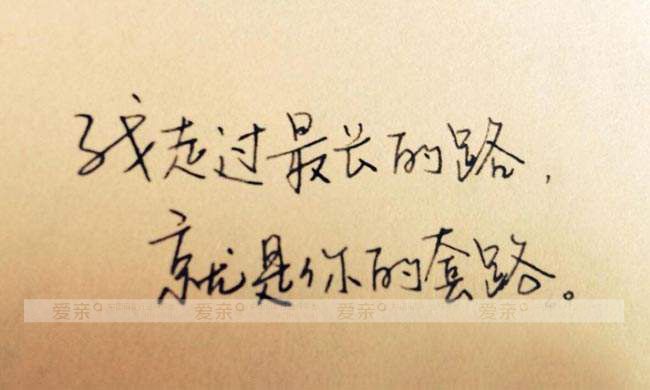 我走过最长的路，
就是你的套路。
爱亲 爱亲 爱亲 爱亲